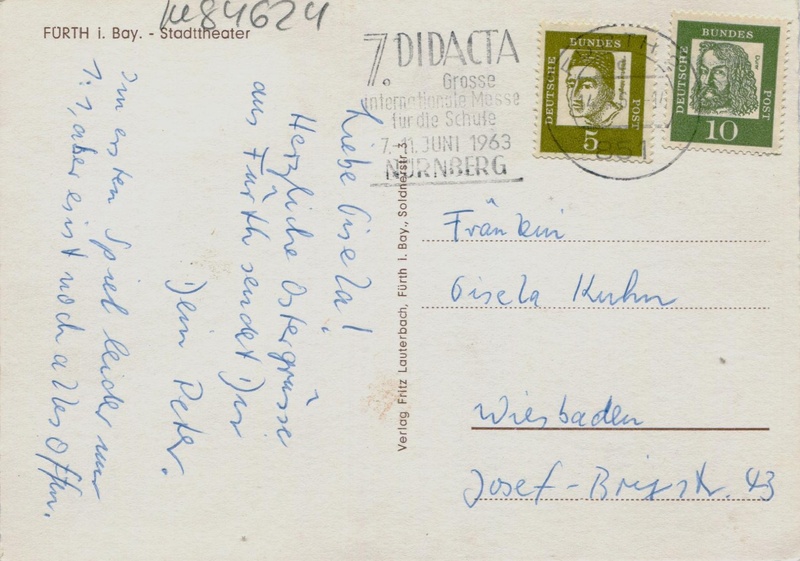 FÜRTH i. Bay. - Stadttheater
7. DIDACTA
Grosse
internationale Messe
für die Schule
7.-11. JUNI 1963
NÜRNBERG
DEUTSCHE
BUNDES
POST
5
DEUTSCHE
BUNDES
POST
Dürer
10
851
Liebe Gisela!
Herzliche Ostergrüsse
aus Fürth sendet Dir
Dein Peter.
Im ersten Spiel leider nur
1:1, aber es ist noch alles offen.
Verlag Fritz Lauterbach, Fürth i. Bay., Soldnerstr. 3
Fräulein
Gisela Kuhn
Wiesbaden
Josef-Brixstr. 43